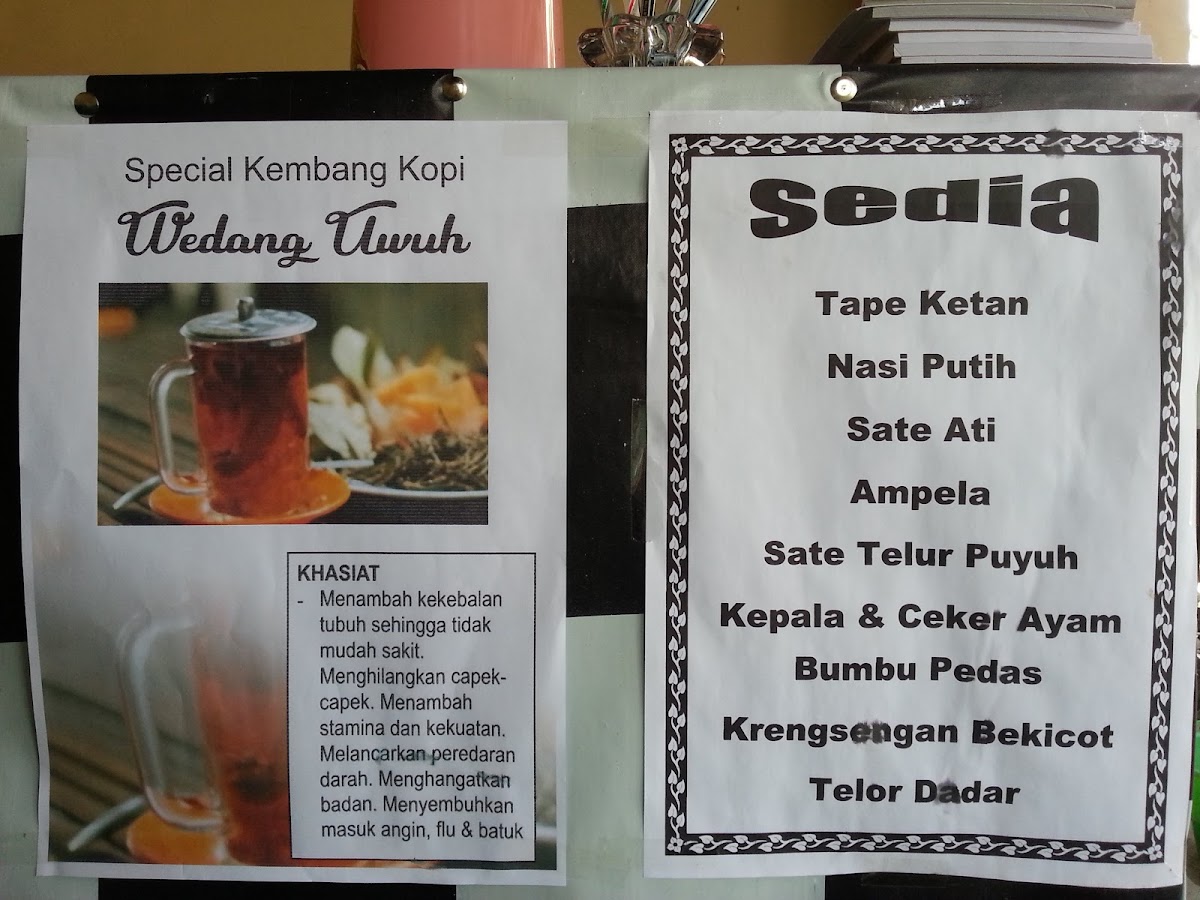 Special Kembang Kopi
Wedang Uwuh
KHASIAT
- Menambah kekebalan
tubuh sehingga tidak
mudah sakit.
Menghilangkan capek-
capek. Menambah
stamina dan kekuatan.
Melancarkan peredaran
darah. Menghangatkan
badan. Menyembuhkan
masuk angin, flu & batuk
Sedia
Tape Ketan
Nasi Putih
Sate Ati
Ampela
Sate Telur Puyuh
Kepala & Ceker Ayam
Bumbu Pedas
Krengsengan Bekicot
Telor Dadar